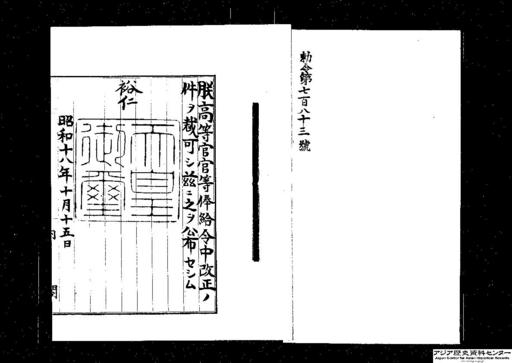 勅令第七百八十三號
朕高等官官等俸給令中改正ノ
件ヲ裁可シ茲ニ之ヲ公布セシム
裕仁
天皇
御璽
昭和十八年十月十五日
内閣
アジア歴史資料センター
Japan Center for Asian Historical Records